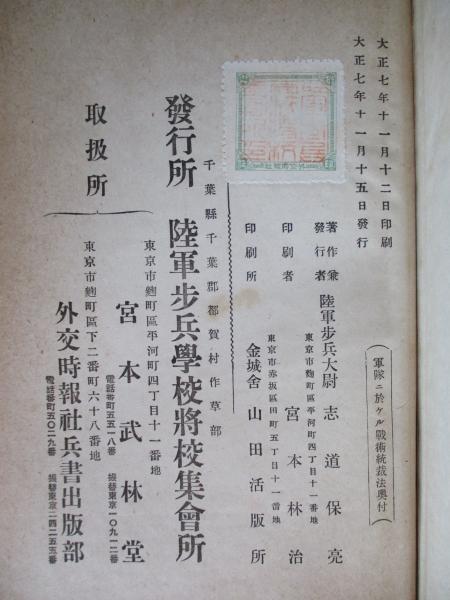 大正七年十一月十二日印刷
大正七年十一月十五日發行
(軍隊ニ於ケル戰術統裁法奧付)
著作兼發行者 陸軍步兵大尉 志道保亮
東京市麴町區平河町四丁目十一番地
印刷者 宮本林治
東京市赤坂區田町五丁目十一番地
印刷所 金城舍 山田活版所
千葉縣千葉郡都賀村作草部
發行所 陸軍步兵學校將校集會所
取扱所
東京市麴町區平河町四丁目十一番地
宮本武林堂
電話番町五五一八番 振替東京一〇九一二番
東京市麴町區下二番町六十八番地
外交時報社兵書出版部
電話番町五〇二九番 振替東京二四二五五番